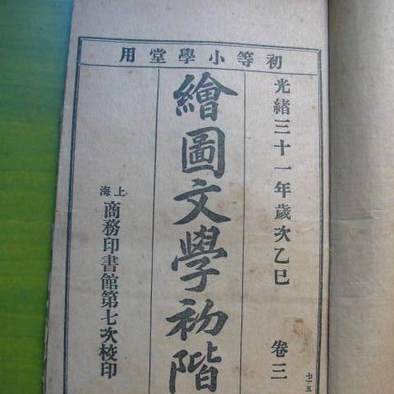 初等小學堂用
光緒三十一年歲次乙巳　卷三
繪圖文學初階
上海
商務印書館第七次校印